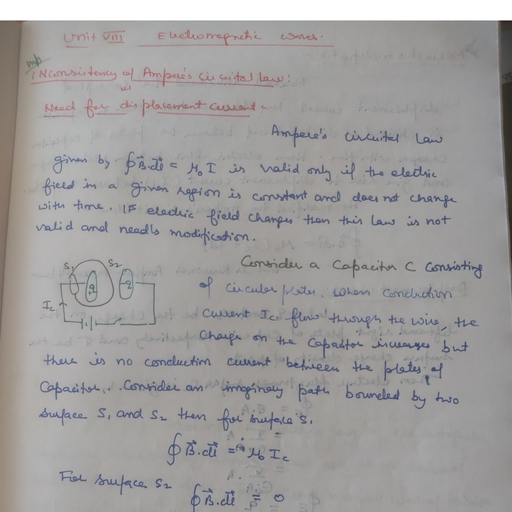 Unit VIII Electromagnetic waves.
imp
Inconsistency of Ampere's circuital law:
or
Need for displacement current -
Ampere's circuital law
given by ∮B⃗.dl⃗ = μ₀ I is valid only if the electric
field in a given region is constant and does not change
with time. If electric field changes then this law is not
valid and needs modification.
S₁ S₂
Ic
Consider a Capacitor C Consisting
of circular plate. When conduction
current Ic flow through the wire, the
charge on the capacitor increases but
there is no conduction current between the plates of
Capacitor. Consider an imaginary path bounded by two
surface S₁ and S₂ then for surface S₁
∮B⃗.dl⃗ = μ₀ Ic
For surface S₂
∮B⃗.dl⃗ = 0